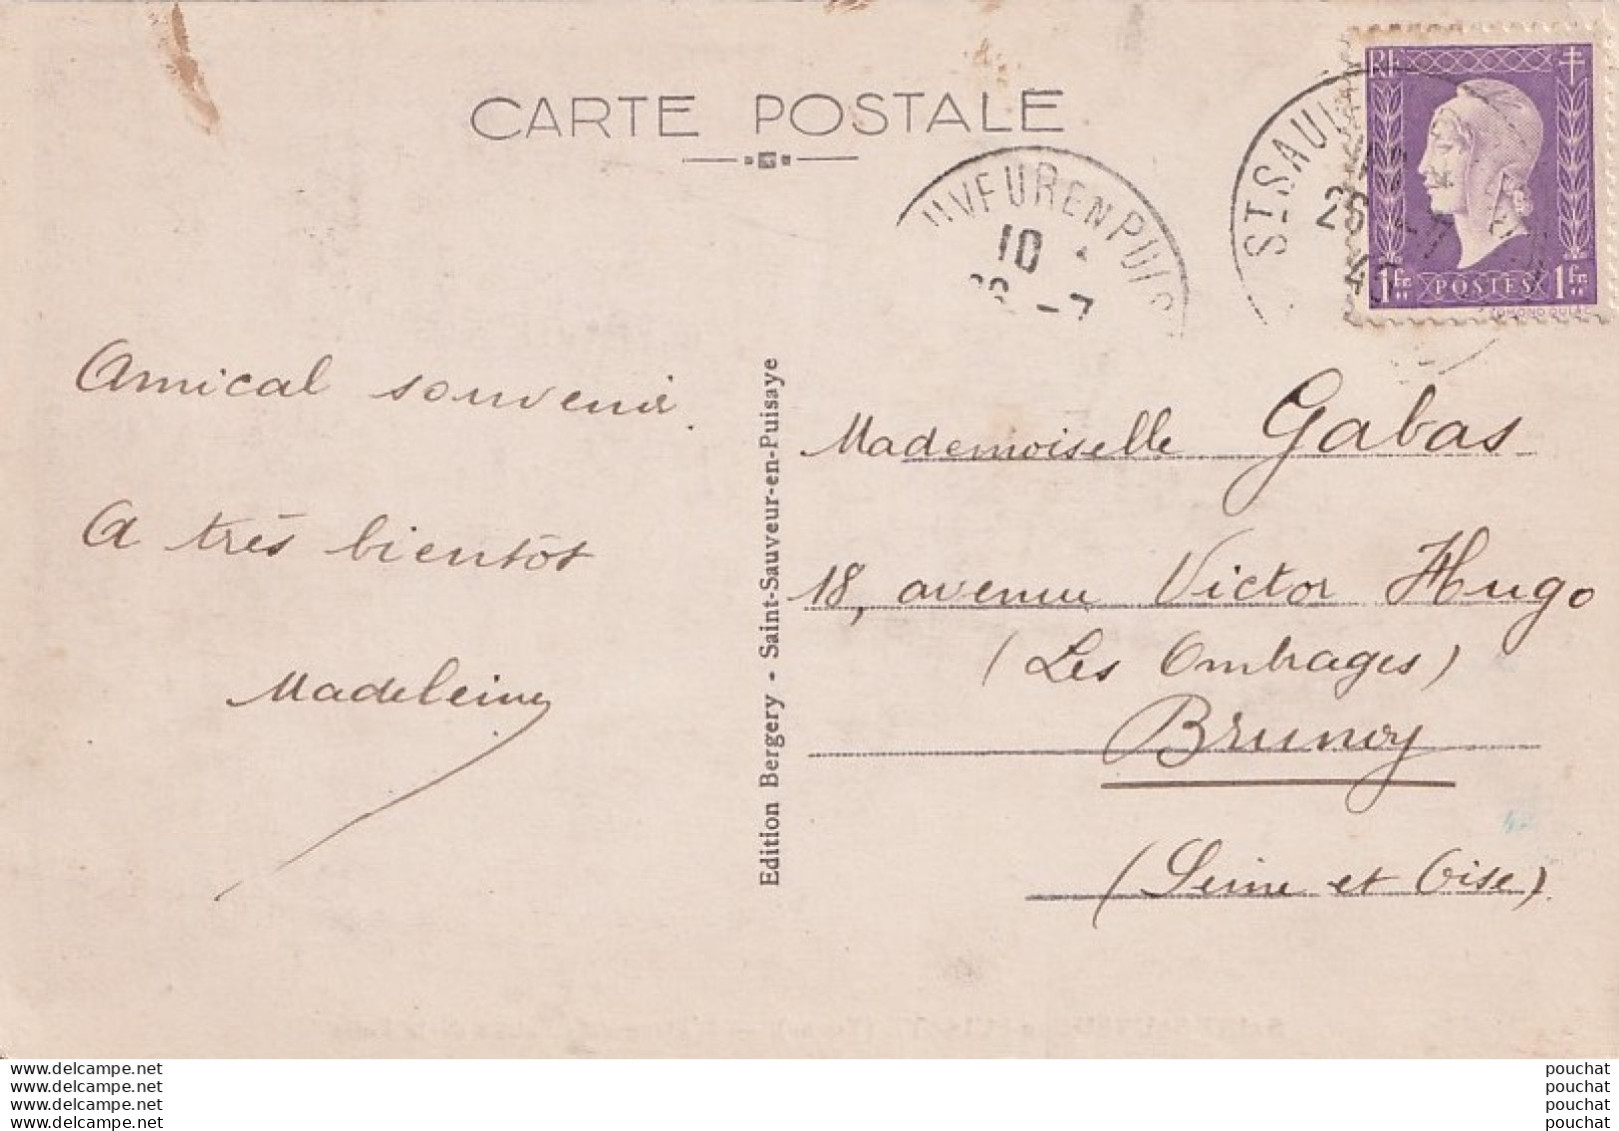 CARTE POSTALE
UVEUR EN PUIS
10
- 7
ST SAUV
26
45
RF
1fr POSTES 1fr
EDMOND DULAC
Amical souvenir.
A très bientôt
Madeleine
Edition Bergery - Saint-Sauveur-en-Puisaye
Mademoiselle Gabas
18, avenue Victor Hugo
(Les Ombrages)
Brunoy
(Seine et Oise).
www.delcampe.net
www.delcampe.net
www.delcampe.net
www.delcampe.net
pouchat
pouchat
pouchat
pouchat